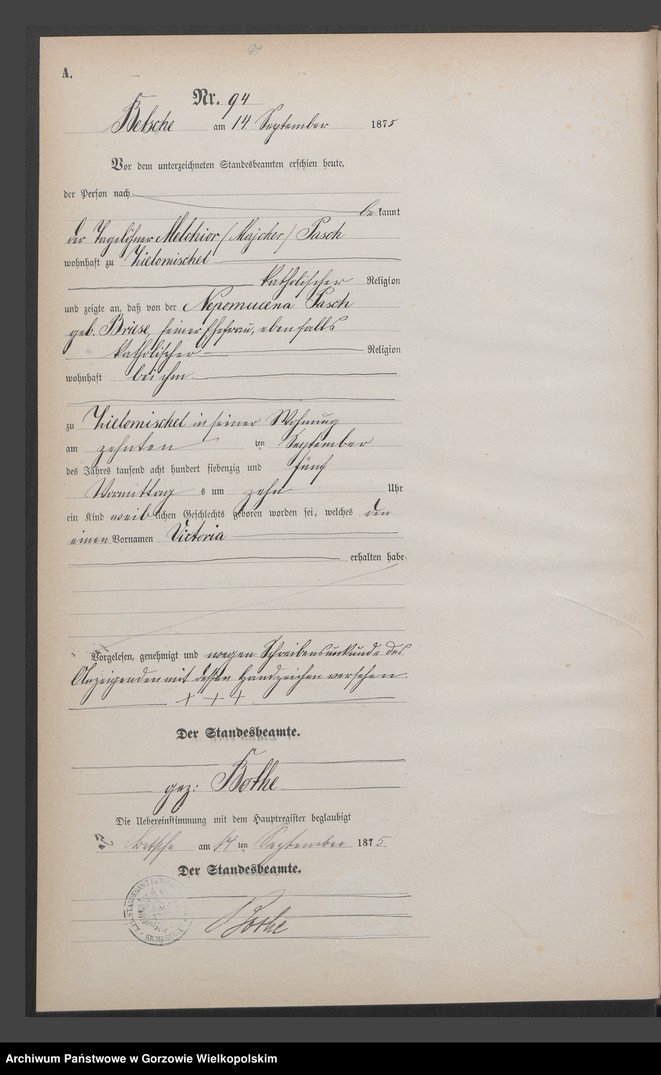 A.
Nr. 94
Betsche am 14 September 1875
Vor dem unterzeichneten Standesbeamten erschien heute,
der Person nach
bekannt
der Tagelöhner Melchior /Majcher/ Pasch
wohnhaft zu Zielomischel
katholischer Religion
und zeigte an, daß von der Nepomucena Pasch
geb. Briese, seiner Ehefrau, ebenfalls
katholischer Religion
wohnhaft bei ihm
zu Zielomischel in seiner Wohnung
am zehnten ten September
des Jahres tausend acht hundert siebenzig und fünf
Vormittag s um zehn Uhr
ein Kind weiblichen Geschlechts geboren worden sei, welches den
einen Vornamen Victoria
erhalten habe.
Vorgelesen, genehmigt und wegen Schreibensunkunde des
Anzeigenden mit dessen Handzeichen versehen.
+ + +
Der Standesbeamte.
gez: Bothe
Die Uebereinstimmung mit dem Hauptregister beglaubigt
Betsche am 14 ten September 1875.
Der Standesbeamte.
Bothe
Archiwum Państwowe w Gorzowie Wielkopolskim